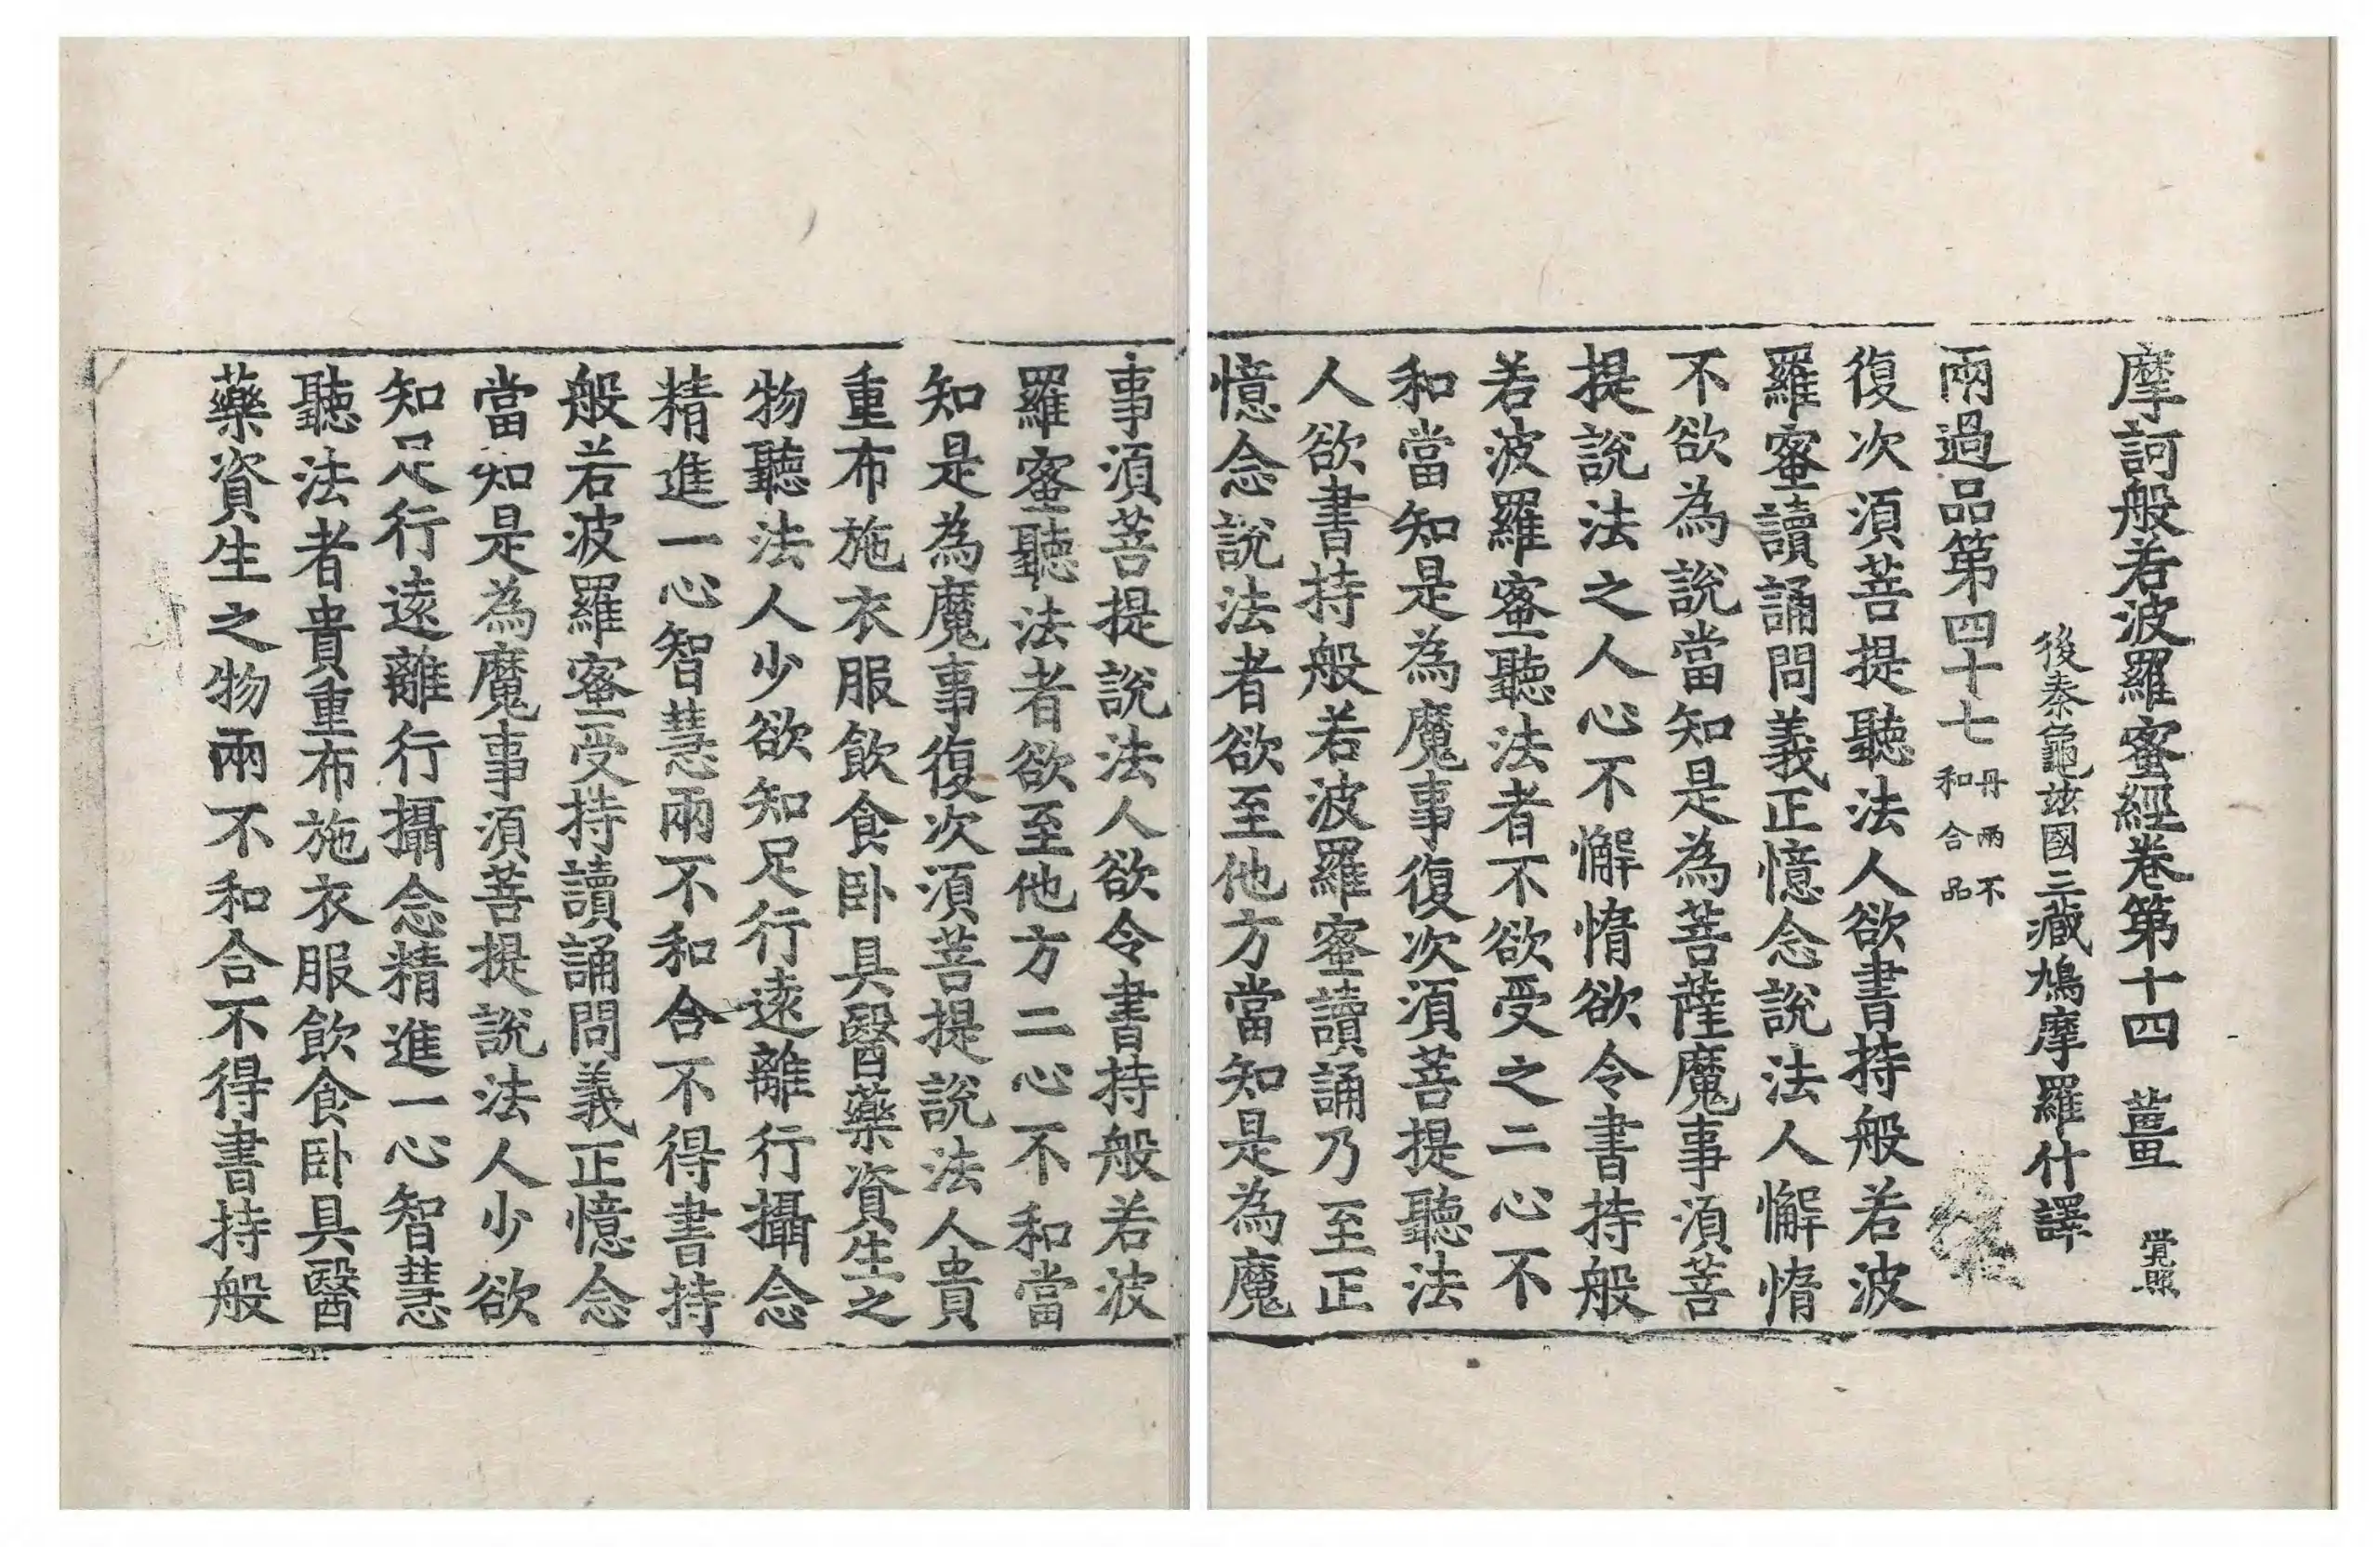 摩訶般若波羅蜜經卷第十四 薑 覺照
後秦龜茲國三藏鳩摩羅什譯
兩過品第四十七 丹兩不和合品
復次須菩提聽法人欲書持般若波
羅蜜讀誦問義正憶念說法人懈惰
不欲為說當知是為菩薩魔事須菩
提說法之人心不懈惰欲令書持般
若波羅蜜聽法者不欲受之二心不
和當知是為魔事復次須菩提聽法
人欲書持般若波羅蜜讀誦乃至正
憶念說法者欲至他方當知是為魔
事須菩提說法人欲令書持般若波
羅蜜聽法者欲至他方二心不和當
知是為魔事復次須菩提說法人貴
重布施衣服飲食卧具醫藥資生之
物聽法人少欲知足行遠離行攝念
精進一心智慧兩不和合不得書持
般若波羅蜜受持讀誦問義正憶念
當知是為魔事須菩提說法人少欲
知足行遠離行攝念精進一心智慧
聽法者貴重布施衣服飲食卧具醫
藥資生之物兩不和合不得書持般